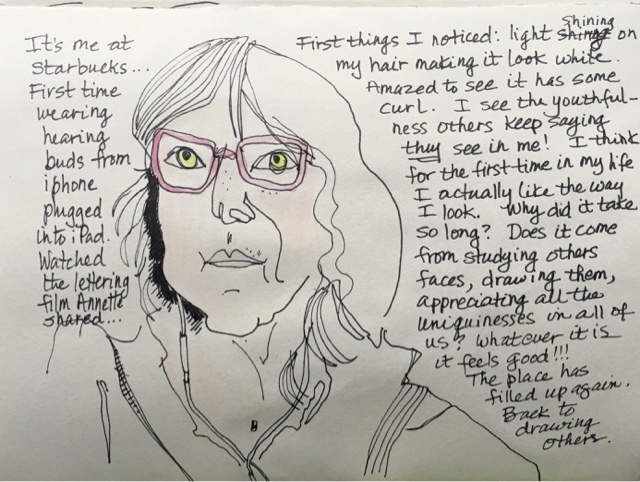 It's me at
Starbucks...
First time
wearing
hearing
buds from
iphone
plugged
into iPad.
Watched
the lettering
film Annette
shared...
Shining
First things I noticed: light on
my hair making it look white.
Amazed to see it has some
curl. I see the youthful-
ness others keep saying
they see in me! I think
for the first time in my life
I actually like the way
I look. Why did it take
so long? Does it come
from studying others
faces, drawing them,
appreciating all the
uniquinesses in all of
us? Whatever it is
it feels good!!!
The place has
filled up again.
Back to
drawing
others.